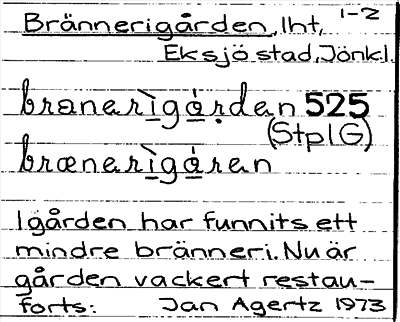 Brännerigården, lht, 1-2
Eksjö stad, Jönk.l.
brænerìgǻrdan 525
(Stpl G)
brænerìgǻren
I gården har funnits ett
mindre bränneri. Nu är
gården vackert restau-
forts: Jan Agertz 1973